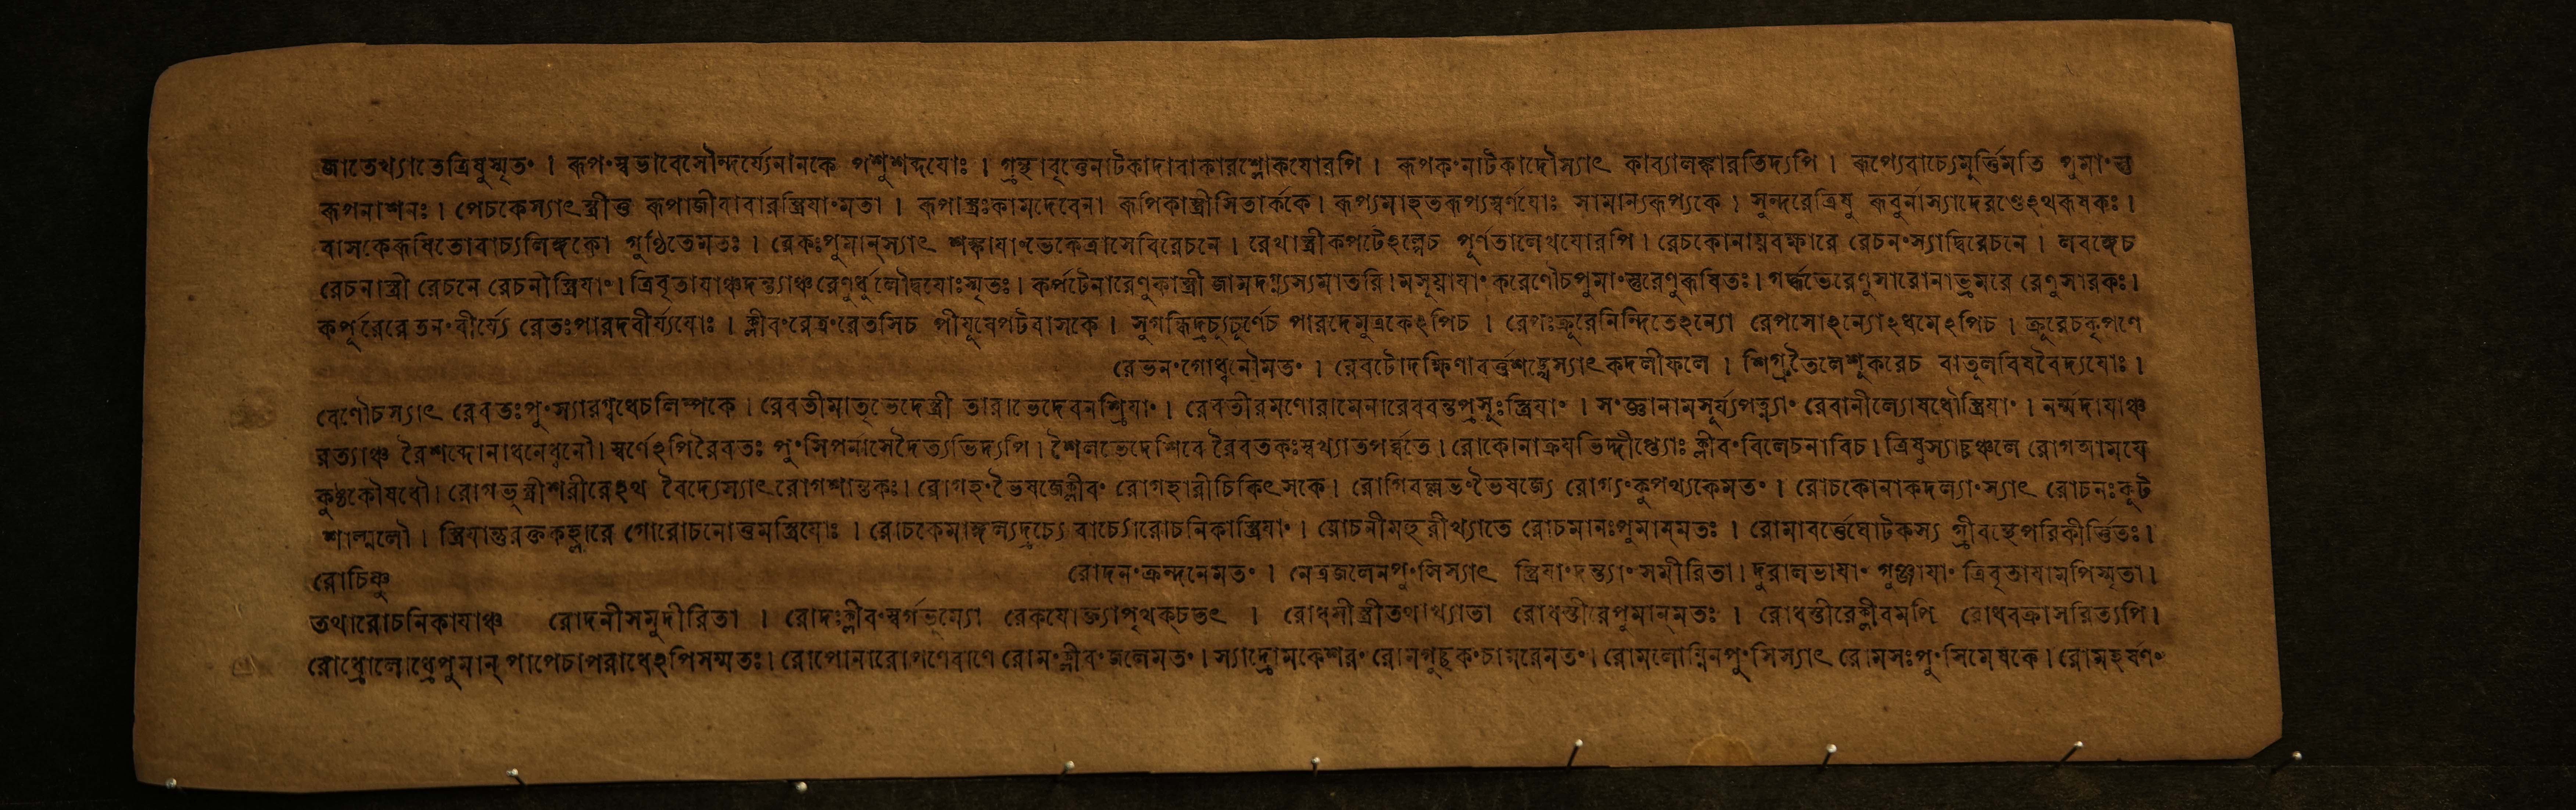 জাতেথ্যাতেত্রিষুস্মৃতং । রূপংস্বভাবেসৌন্দর্য্যেনানকে পশুশব্দযোঃ । গ্রন্থাবৃত্তেনাটকাদাবাকারশ্লোকযোরপি । রূপকংনাটকাদৌস্যাৎ কাব্যালঙ্কারভিদ্যপি । রূপ্যেবাচ্যেমূর্ত্তিমতি পুমাংস্তু
রূপনাশনঃ । পেচকেস্যাৎস্ত্রীতু রূপাজীবাবারস্ত্রিযাংমতা । রূপাস্ত্রঃকামদেবেনা রূপিকাস্ত্রীসিতার্ককে । রূপ্যমাহতরূপ্যস্বর্ণযোঃ সামান্যরূপ্যকে । সুন্দরেত্রিষু রূবুর্নাস্যাদেরণ্ডেঽথরূষকঃ ।
বাসকেরূষিতোবাচ্যলিঙ্গকো গুণ্ঠিতেমতঃ । রেকঃপুমান্স্যাৎ শঙ্কাযাংভেকেত্রাসেবিরেচনে । রেথাস্ত্রীকপটেঽল্পেচ পূর্ণতালেখযোরপি । রেচকোনাযবক্ষারে রেচনংস্যাদ্বিরেচনে । লবঙ্গেচ
রেচনাস্ত্রী রেচনে রেচনীস্ত্রিযাং । ত্রিবৃতাযাঞ্চদন্ত্যাঞ্চরেণুর্ধুলৌদ্বযোঃস্মৃতঃ । কর্পটেনারেণুকাস্ত্রী জামদগ্ন্যস্যমাতরি । মসূযাযাং করেণৌচপুমাংস্তুরেণুরূষিতঃ । গর্দ্ধভেরেণুসারোনাভ্রমরে রেণুসারকঃ ।
কর্পূরেরেতনংবীর্য্যে রেতঃপারদবীর্য্যযোঃ । ক্লীবংরেত্রংরেতসিচ পীযূষেপটবাসকে । সুগন্ধিদ্রচ্যচূর্ণেচ পারদেসূত্রকেঽপিচ । রেপঃক্রূরেনিন্দিতেঽন্যো রেপসোঽন্যোঽধমেঽপিচ । ক্রূরেচকৃপণে
রেভনংগোধ্বনৌমতং । রেবটোদক্ষিণাবর্ত্তশঙ্খেস্যাৎকদলীফলে । শিগ্রুতৈলেশূকরেচ বাতূলবিষবৈদ্যযোঃ ।
বেণৌচস্যাৎ রেবতঃপুংস্যারগ্বধেচলিম্পকে । রেবতীমাতৃভেদেস্ত্রী তারাভেদেবনশ্রিযাং । রেবতীরমণোরামেনারেববন্তপ্রসূঃস্ত্রিযাং । সংজ্ঞানামসূর্য্যপত্ন্যাং রেবানীল্যোষধৌস্ত্রিযাং । নর্ম্মদাযাঞ্চ
রত্যাঞ্চ রৈশব্দোনাধনেধ্বনৌ । স্বর্ণেঽপিরৈবতঃ পুংসিপনাসেদৈত্যভিদ্যপি । শৈলভেদেশিবে রৈবতকঃস্বখ্যাতপর্ব্বতে । রোকোনাক্রযভিদ্দীপ্ত্যোঃ ক্লীবংবিলেচনাবিচ । ত্রিষুস্যাচ্চঞ্চলে রোগআমযে
কুষ্ঠকৌষধৌ । রোগভূস্ত্রীশরীরেঽথ বৈদ্যেস্যাৎরোগশান্তকঃ । রোগহংভৈষজেক্লীবং রোগহারীচিকিৎসকে । রোগিবল্লভংভৈষজ্যে রোগ্যংকুপথ্যকেমতং । রোচকোনাকদল্যাংস্যাৎ রোচনঃকূট
শাল্মলৌ । স্ত্রিযান্তুরক্তকহ্লারে গোরোচনোত্তমস্ত্রিযোঃ । রোচকেমাঙ্গল্যদ্রচ্যে বাচ্যোরোচনিকাস্ত্রিযাং । রোচনীমহুরীখ্যাতে রোচমানঃপুমান্মতঃ । রোমাবর্ত্তেঘোটকস্য গ্রীবস্থেপরিকীর্ত্তিতঃ ।
রোচিষ্ণু রোদনংক্রন্দনেমতং । নেত্রজলেনপুংসিস্যাৎ স্ত্রিযাংদন্ত্যাংসমীরিতা । দুরালভাযাং গুঞ্জাযাং ত্রিবৃতাযামপিস্মৃতা ।
তথারোচনিকাযাঞ্চ রোদনীসমুদীরিতা । রোদঃক্লীবংস্বর্গভূম্যো রেকযোক্ত্যাপৃথক্চতৎ । রোধসীস্ত্রীতথাখ্যাতা রোধস্তীরেপুমান্মতঃ । রোধস্তীরেক্লীবমপি রোধবক্রাসরিত্যপি ।
রোধ্রোলোধ্রেপুমান্ পাপেচাপরাধেঽপিসম্মতঃ । রোপোনারোপণেবাণে রোমংক্লীবংজলেমতং । স্যাদ্রোমকেশরং রোমগুচ্ছকংচামরেমতং । রোমলোগ্নিনপুংসিস্যাৎ রোমসঃপুংসিমেষকে । রোমহর্ষণং